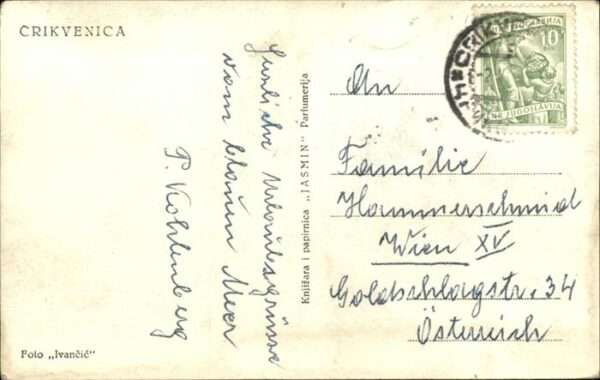 CRIKVENICA
Herzliche Urlaubsgrüsse
vom blauen Meer
P. Kohlenberg
Foto „Ivančić"
Knjižara i papirnica „JASMIN" Parfumerija
JUGOSLAVIJA
10
CRIKV
FNR JUGOSLAVIJA
An
Familie
Hammerschmid
Wien XV
Goldschlagstr. 34
Österreich